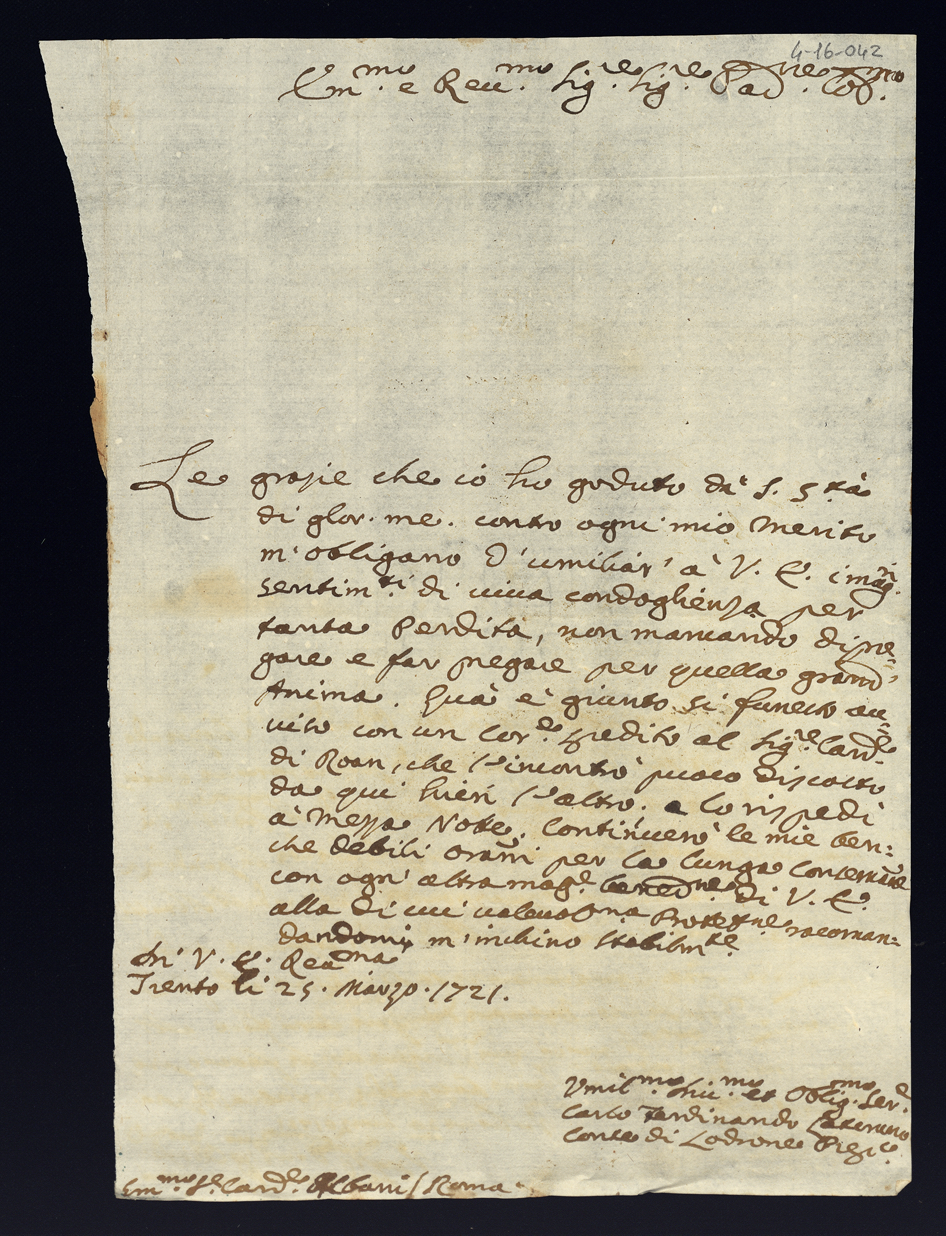 4-16-042
Em.mo e Reu.mo Sig.re Sig.re Pad.ne Col.mo
Le grazie che io ho goduto dà S. Stà
di glor. me. contro ogni mio merito
m'obligano d'umiliar' à V. E. i mag.ri
sentim.ti di viva condoglienza per
tanta Perdita, non mancando di pre-
gare e far pregare per quella grand'
Anima. Quà è giunto si funesto au-
viso con un Cor.e spedito al Sig.re Card.le
di Roan, che l'incontrò puoco discosto
da qui hieri l'altro. e lo rispedi
à Mezza Notte. Continuerò le mie ben-
che debili oraōni per la lunga
con ogn' altra mag.e bened.ne di V. E.
alla di cui Protet.ne racoman-
dandomi m'inchino
di V. E. Reu.ma
Trento li 25. Marzo. 1721.
Umil.mo et Oblig.mo Ser.e
Carlo Ferdinando
Conte di Lodrone
Em.mo S.e Card.le Albani / Roma